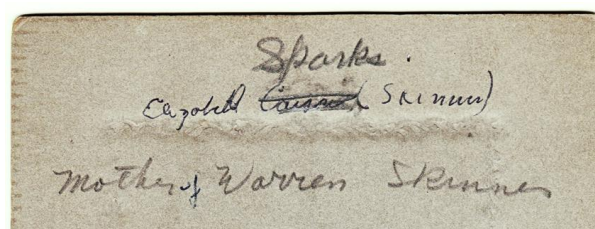 Sparks.
Elizabeth (Skinner)
Mother of Warren Skinner